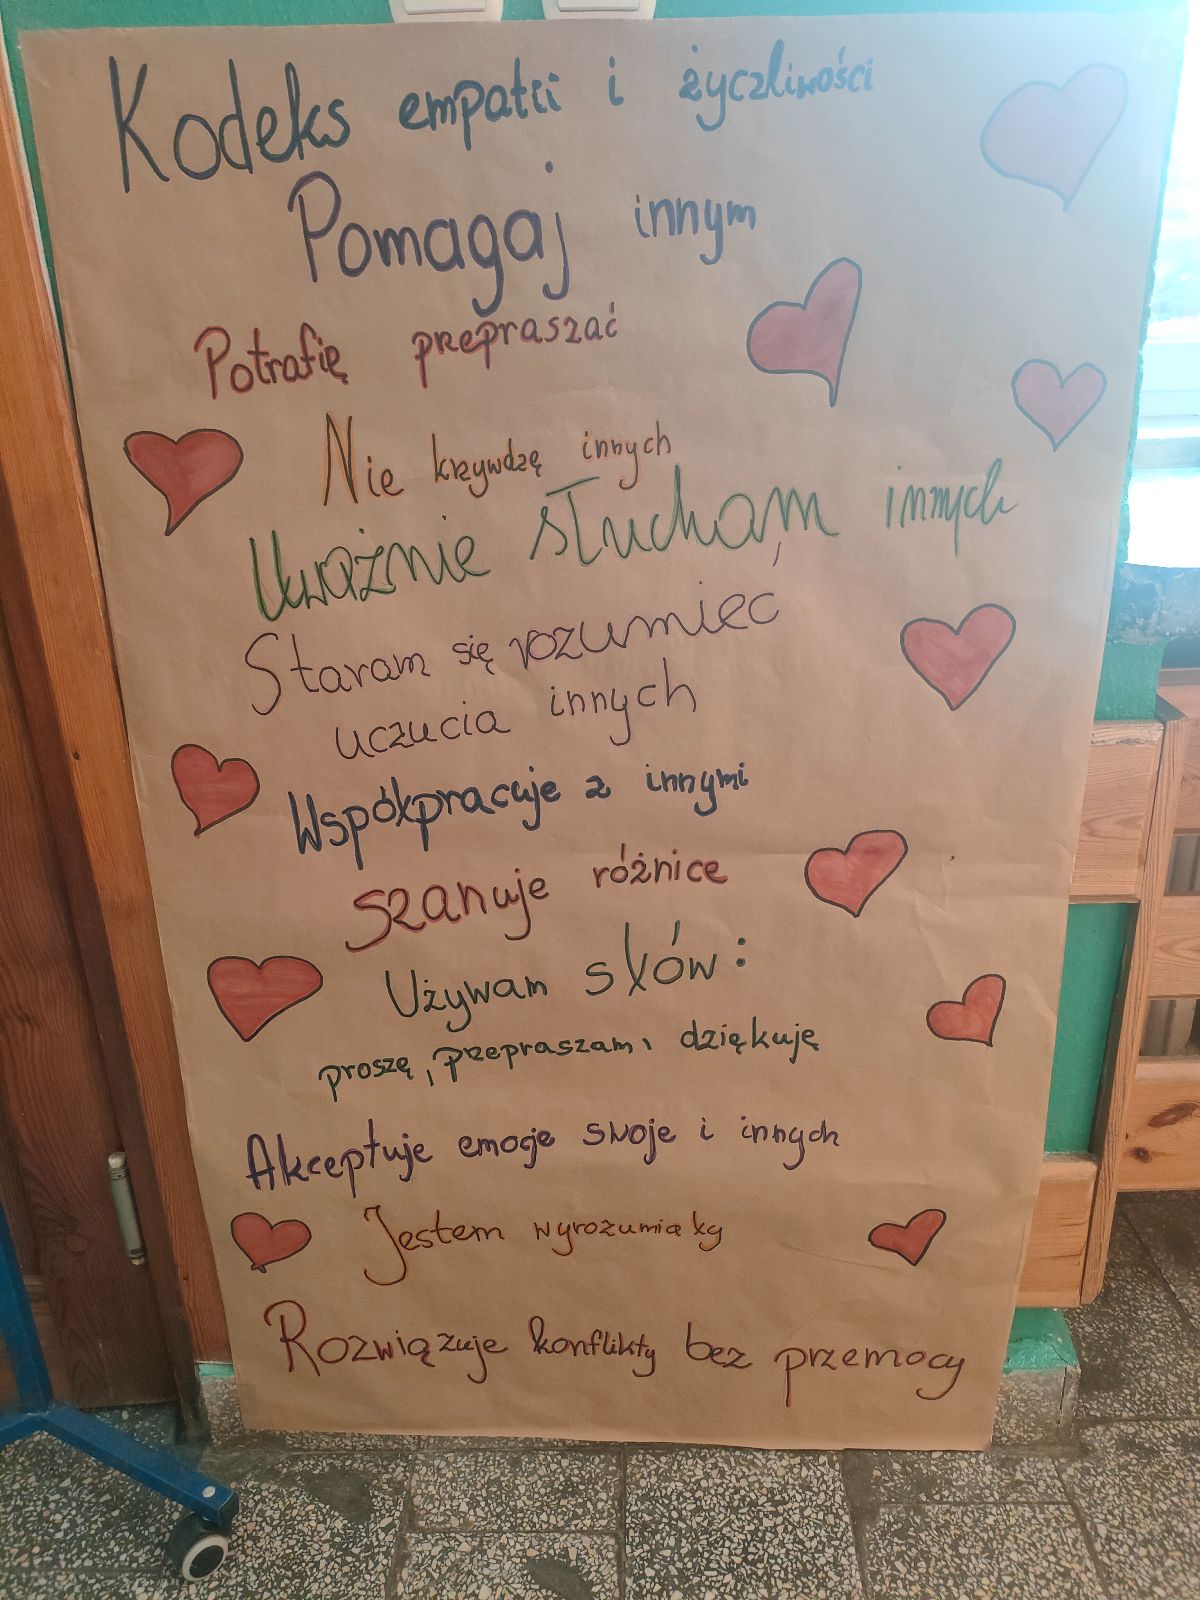 Kodeks empatii i życzliwości
Pomagaj innym
Potrafię przepraszać
Nie krzywdzę innych
Uważnie słucham innych
Staram się rozumieć
uczucia innych
Współpracuje z innymi
szanuje różnice
Używam słów:
proszę, przepraszam, dziękuję
Akceptuje emocje swoje i innych
Jestem wyrozumiały
Rozwiązuje konflikty bez przemocy